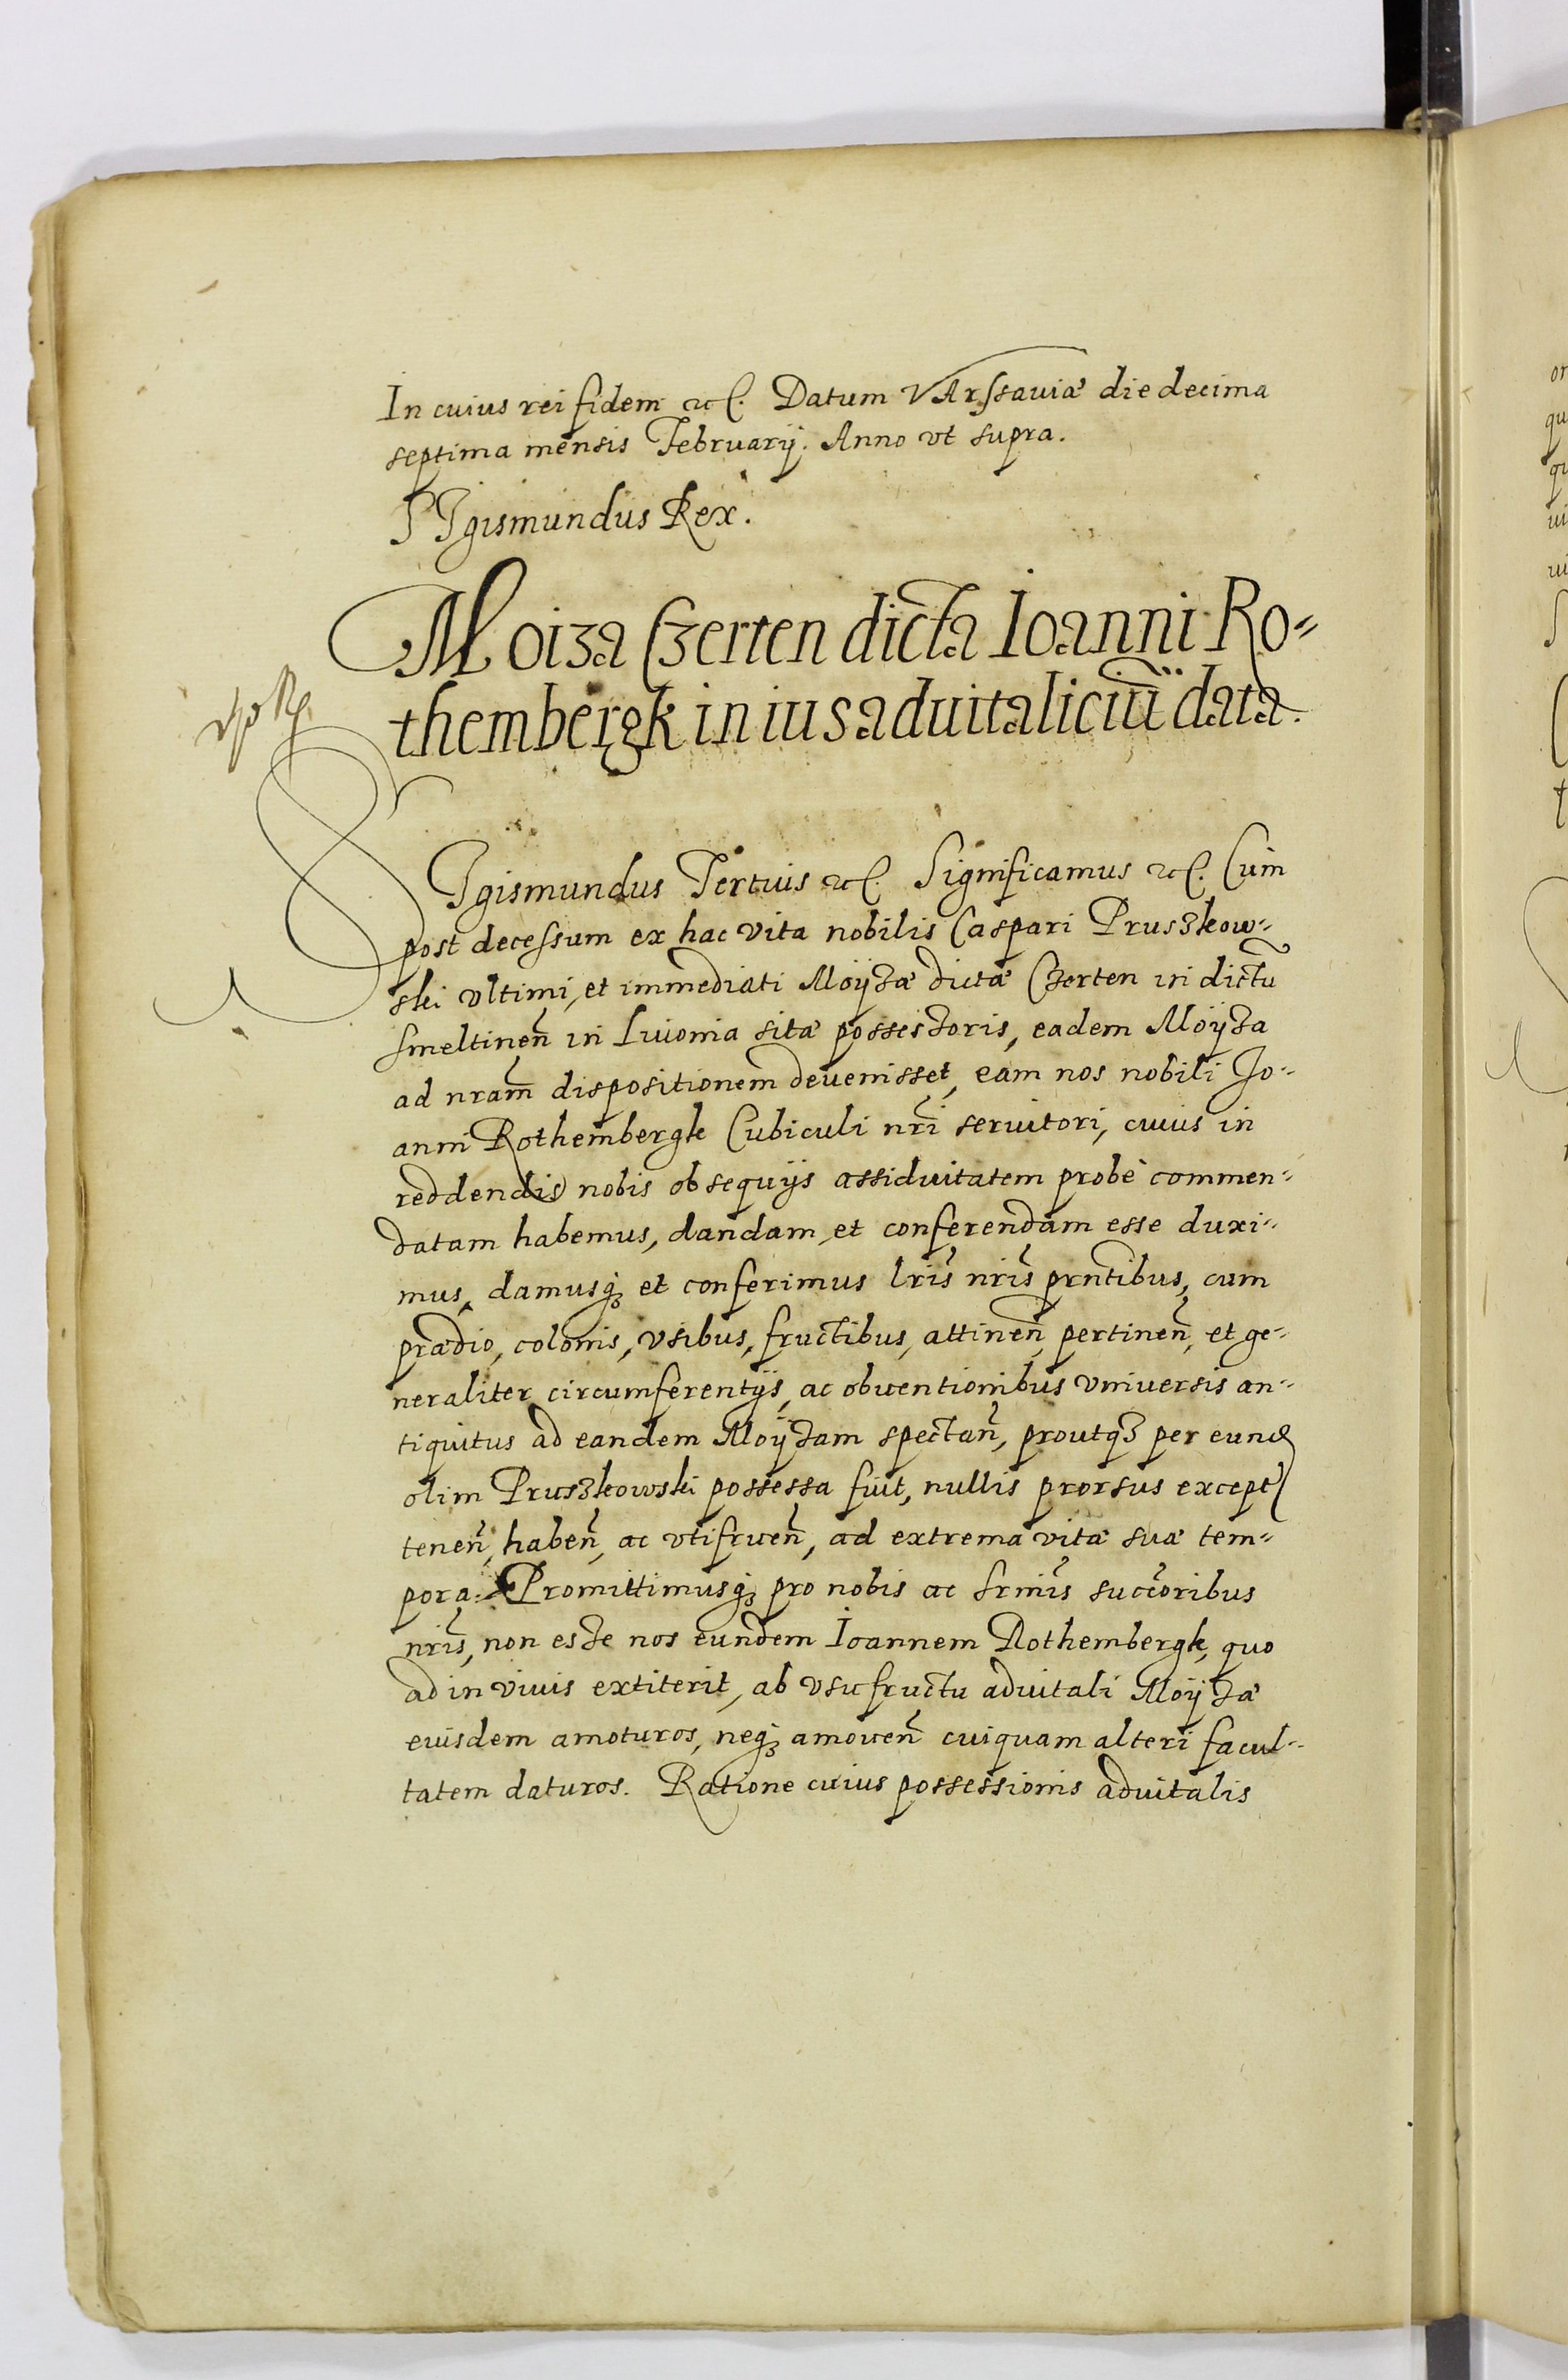 In cuius rei fidem etc. Datum VArssaviæ die decima
septima mensis Februarij. Anno vt supra.
SIgismundus Rex.
Moiza Czerten dicta Ioanni Ro=
thembergk in ius aduitaliciũ data.
SIgismundus Tertius etc. Significamus etc. Cum
post decessum ex hac vita nobilis Caspari Pruszkow=
ski vltimi, et immediati Moÿzæ dictæ Czerten in dictũ
Smeltineñ in Liuonia sitæ possessoris, eadem Moÿza
ad nram̃ dispositionem deuenisset, eam nos nobili Jo=
anni Rothembergk Cubiculi nrĩ seruitori, cuius in
reddendis nobis obsequijs assiduitatem probè commen=
datam habemus, dandam, et conferendam esse duxi=
mus, damusq; et conferimus lris̃ nris̃ prñtibus, cum
prædio, colonis, vsibus, fructibus, attineñ, pertineñ, et ge=
neraliter circumferentijs, ac obuentionibus vniuersis an=
tiquitus ad eandem Moÿzam spectañ, proutq; per eund
olim Pruszkowski possessa fuit, nullis prorsus except
teneñ, habeñ, ac vtifrueñ, ad extrema vitæ suæ tem=
pora. Promittimusq; pro nobis ac Srmis̃ succ̃oribus
nris̃, non esse nos eundem Ioannem Rothembergk, quo
ad in viuis extiterit, ab vsufructu aduitali Moÿzæ
eiusdem amoturos, neq; amoueñ cuiquam alteri facul=
tatem daturos. Ratione cuius possessionis aduitalis